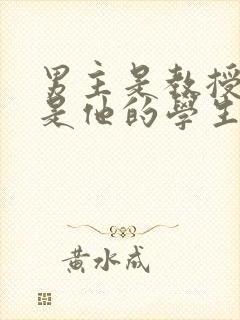 男主是教授
是他的學生
黃水成